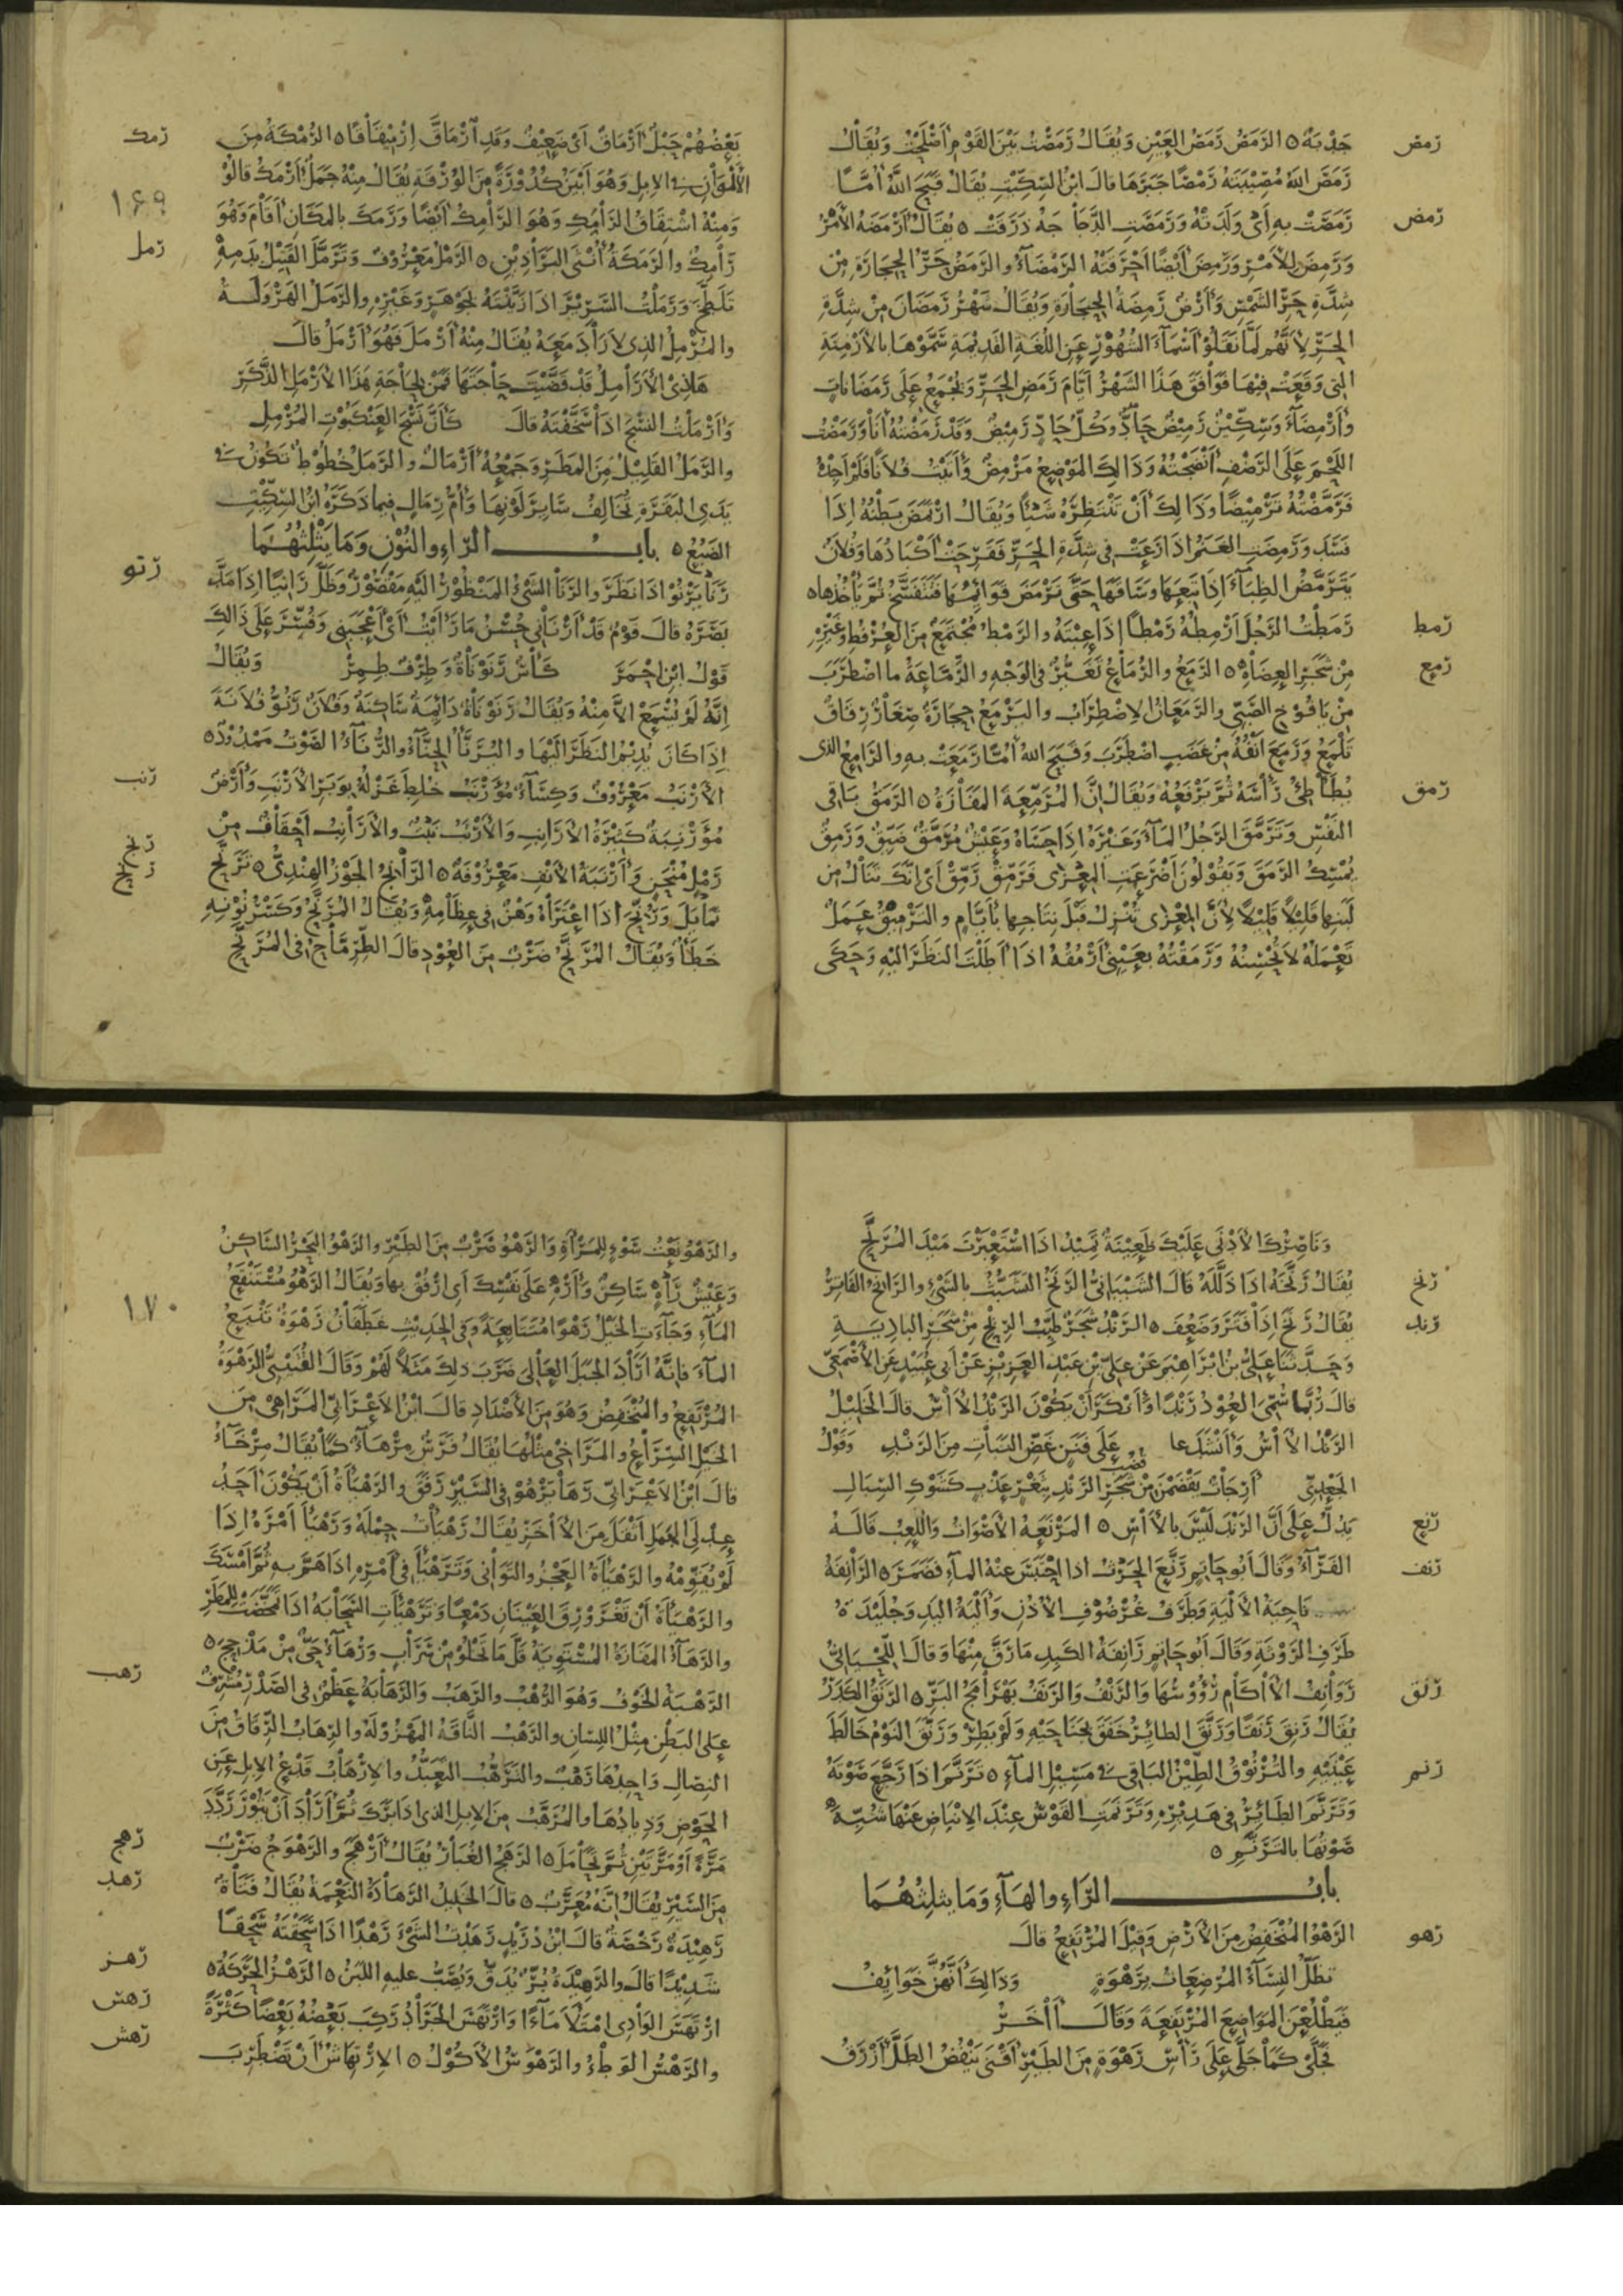 رمص
جذبه ٥ الرمص رمص العين ويقال رمصت بين القوم اصلحت ويقال
رمص الله مصيبته رمصا جبرها قال ابن السكيت يقال قبح الله امّا
رمض
رمصت به اي ولدته ورمصت الدجاجة ذرقت ٥ يقال ارمضه الامر
ورمض للامر ورمض ايضا احرقته الرمضاء والرمض حر الحجارة من
شدة حر الشمس وارض رمضة الحجارة ويقال شهر رمضان من شدة
الحر لانهم لما نقلوا اسماء الشهور عن اللغة القديمة سموها بالازمنة
التي وقعت فيها فوافق هذا الشهر ايام رمض الحر ويجمع على رمضانات
وارمضاء وسكين رميض حاد وكل حاد رميض وقد رمضته انا ورمضت
اللحم على الرضف انضجته وذلك الموضع مرمض واتيت فلانا فلم اجده
فرمضته ترميضا وذلك ان تنتظره شيئا ويقال ارتمض بطنه اذا
فسد ورمضت الغنم اذا رعت في شدة الحر فقرحت اكبادها وفلان
يترمض الظباء اذا تبعها وساقها حتى ترمض قوائمها فتتفسخ ثم ياخذها ٥
رمط
رمطت الرجل ارمطه رمطا اذا عبته والرمط مجتمع من العرفط وغيره
رمع
من شجر العضاه ٥ الرمع والرماع تغير في الوجه والرماعة ما اضطرب
من يافوخ الصبي والرمعان الاضطراب واليرمع حجارة صغار رقاق
تلمع ورمع انفه من غضب اضطرب وقبح الله امّا رمعت به والرامع الذي
رمق
يطاطئ راسه ثم يرفعه ويقال ان المرمعة المفازة ٥ الرمق باقي
النفس وترمق الرجل الماء وغيره اذا حساه وعيش مرمق ضيق ورمق
يمسك الرمق ويقولون اضرعت المعزى فرمق رمق اي انك تنال من
لبنها قليلا قليلا لان المعزى تنزل قبل نتاجها بايام والترميق عمل
تعمله لا تحسنه ورمقته بعيني ارمقه اذا اطلت النظر اليه وحكى
رمك
بعضهم حبل ارماق اي ضعيف وقد ارماق ارميقاقا ٥ الرمكة من
١٦٩
الالوان في الابل وهو ابين كدورة من الورقة يقال منه جمل ارمك قالوا
ومنه اشتقاق الرامك وهو الرامك ايضا ورمك بالمكان اقام وهو
رمل
رامك والرمكة انثى البراذين ٥ الرمل معروف وترمل القتيل بدمه
تلطخ ورملت السرير اذا زينته بجوهر وغيره والرمل الهرولة
والمرمل الذي لا زاد معه يقال منه ارمل فهو ارمل قال
هاذي الارامل قد قضيت حاجتها فمن لحاجة هذا الارمل الذكر
وارملت النسج اذا سخفته قال كان نسج العنكبوت المرمل
والرمل القليل من المطر وجمعه ارمال والرمل خطوط تكون في
يدي البقرة تخالف سائر لونها وام رمال فيما ذكره ابن السكيت
الضبع ٥ باب الراء والنون وما يثلثهما
رنو
رنا يرنوا اذا نظر والرنا الشيء المنظور اليه مقصور وظل رانيا اذا مد
بصره قال قوم قد ارناني حسن ما رايت اي اعجبني وفسر على ذالك
قول ابن احمر كاس رنوناة وطرف طمر ويقال
انه لم يسمع الا منه ويقال رنوناة دائمة ساكنة وفلان رنو فلانة
اذا كان يديم النظر اليها واليرنا الحناء والرناء الصوت ممدود ٥
رنب
الارنب معروف وكساء مؤرنب خلط غزله بوبر الارنب وارض
مؤرنبة كثيرة الارانب والارنب نبت والارانب احقاف من
رنج
رنح
رمل منحن وارنبة الانف معروفة ٥ الرانج الجوز الهندي ٥ ترنح
تمايل ورنح اذا اعتراه وهن في عظامه ويقال المرنح وكسر نونه
خطا ويقال المرنح ضرب من العود قال الطرماح في المرنح
وناصرك الادنى عليك ظعينة تميد اذا استعبرت ميد المرنح
رنخ
يقال رنخه اذا ذلله قال الشيباني الرنخ التشبث بالشيء والرانخ الفاتر
رند
يقال رنخ اذا فتر وضعف ٥ الرند شجر طيب الريح من شجر البادية
وحدثنا علي بن ابراهيم عن علي بن عبد العزيز عن ابي عبيد عن الاصمعي
قال ربما سمي العود رندا وانكر ان يكون الرند الاس قال الخليل
الرند الاس وانشد على فنن غض النبات من الرند وقول
قضب
الجعدي ارجات يقضمن من شجر الرند بثغر عذب كشوك السيال
رنع
يدل على ان الرند ليس بالاس ٥ المرنعة الاصوات واللعب قاله
رنف
الفراء وقال ابو حاتم رنع الحرث اذا احتبس عنه الماء فضمر ٥ الرانفة
ناحية الالية وطرف غرضوف الاذن والية اليد وجليدة
طرف الروثة وقال ابو حاتم رانفة الكبد ما رق منها وقال اللحياني
رنق
روانف الاكام رؤوسها والرنف والرنف بهرامج البر ٥ الرنق الكدر
يقال رنق رنقا ورنق الطائر خفق بجناحيه ولم يطر ورنق النوم خالط
رنم
عينيه والترنوق الطين الباقي في مسيل الماء ٥ ترنم اذا رجع صوته
وترنم الطائر في هديره وترنمت القوس عند الانباض عنها شبه
صوتها بالترنم ٥
باب الراء والهاء وما يثلثهما
رهو
الرهو المنخفض من الارض وقيل المرتفع قال
تظل النساء المرضعات برهوة وذالك انهن خوايف
فيطلعن المواضع المرتفعة وقال اخر
تجلى كما جلى على راس رهوة من الطير اقنى ينفض الطل ازرق
والرهو نعت سوء للمراة والرهو ضرب من الطير والرهو البحر الساكن
وعيش راه ساكن واره على نفسك اي ارفق بها ويقال الرهو مستنقع
١٧٠
الماء وجاءت الخيل رهوا متتابعة وفي الحديث غطفان رهوة تنبع
الماء فانه اراد الجبل العالي ضرب ذلك مثلا لهم وقال القتيبي الرهوة
المرتفع والمنخفض وهو من الاضداد قال ابن الاعرابي المراهي من
الخيل السراع والمراخي مثلها يقال فرس مرهاء كما يقال مرخاء
قال ابن الاعرابي رها يرهو في السير رفق والرهياة ان يكون احد
عدلي الحمل اثقل من الاخر يقال رهيات حملك ورهيا امره اذا
لم يقومه والرهياة العجز والتواني وترهيا في امره اذا هم به ثم امسك
والرهياة ان تغرورق العينان دمعا وترهيات السحابة اذا تمخضت للمطر
والرهاء المفازة المستوية قل ما تخلو من سراب ورهاء حي من مذحج ٥
رهب
الرهبة الخوف وهو الرهب والرهب والرهابة عظم في الصدر مشرف
على البطن مثل اللسان والرهب الناقة المهزولة والرهاب الرقاق من
النصال واحدها رهب والترهب التعبد والارهاب قدع الابل عن
الحوض وذيادها والمرهب من الابل الذي اذا برك ثم اراد ان يثور ردد
رهج
مرة او مرتين ثم تحامل ٥ الرهج الغبار يقال ارهج والرهوج ضرب
رهد
من السير يقال انه معرب ٥ قال الخليل الرهادة النعمة يقال فتاة
رهيدة رخصة قال ابن دريد رهدت الشيء رهدا اذا سحقته سحقا
رهز
شديدا قال والرهيدة بر يدق ويصب عليه اللبن ٥ الرهز الحركة ٥
رهس
ارتهس الوادي امتلا ماء وارتهس الجراد ركب بعضه بعضا كثرة
رهش
والرهس الوطء والرهوس الاكول ٥ الارتهاش ان تضطرب